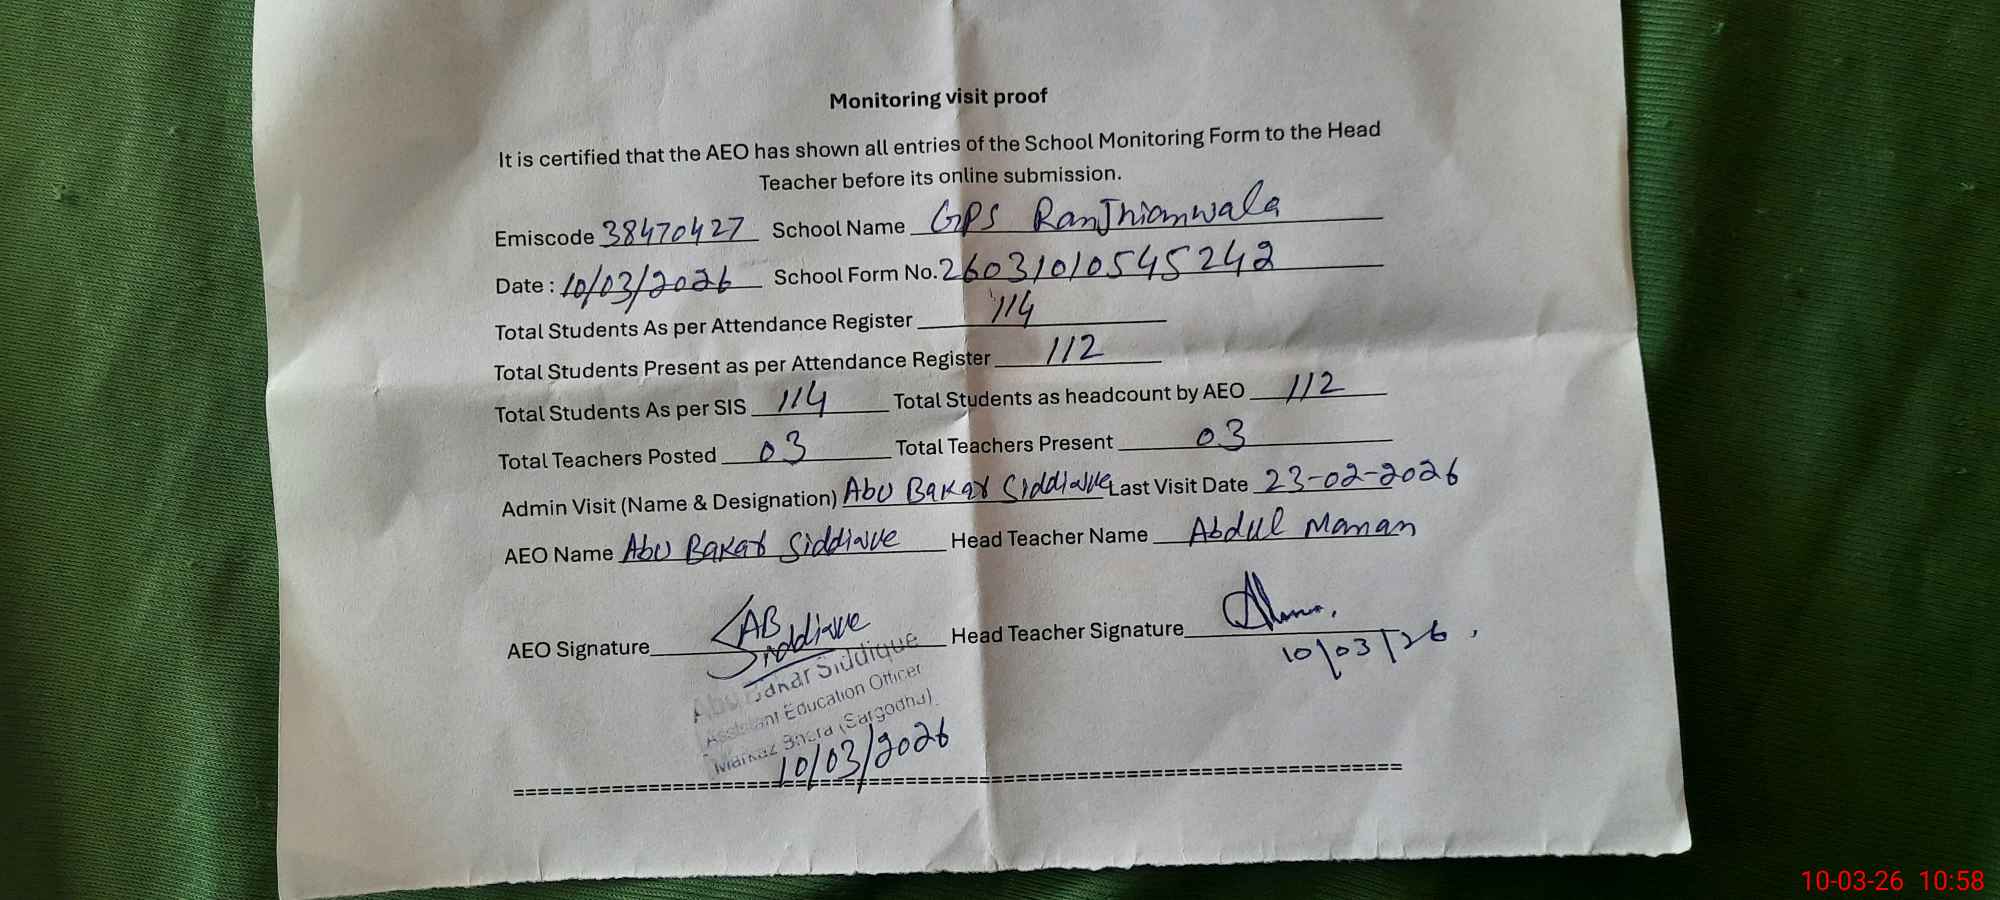 Monitoring visit proof
It is certified that the AEO has shown all entries of the School Monitoring Form to the Head
Teacher before its online submission.
Emiscode 38470427 School Name GPS RanJhianwala
Date : 10/03/2026 School Form No. 26031010545242
Total Students As per Attendance Register 114
Total Students Present as per Attendance Register 112
Total Students As per SIS 114 Total Students as headcount by AEO 112
Total Teachers Posted 03 Total Teachers Present 03
Admin Visit (Name & Designation) Abu Bakar Siddique Last Visit Date 23-02-2026
AEO Name Abu Bakar Siddique Head Teacher Name Abdul Manan
AEO Signature AB Siddique Head Teacher Signature
10/03/26
Abu Bakar Siddique
Assistant Education Officer
Markaz Bhera (Sargodha)
10/03/2026
==========
10-03-26 10:58